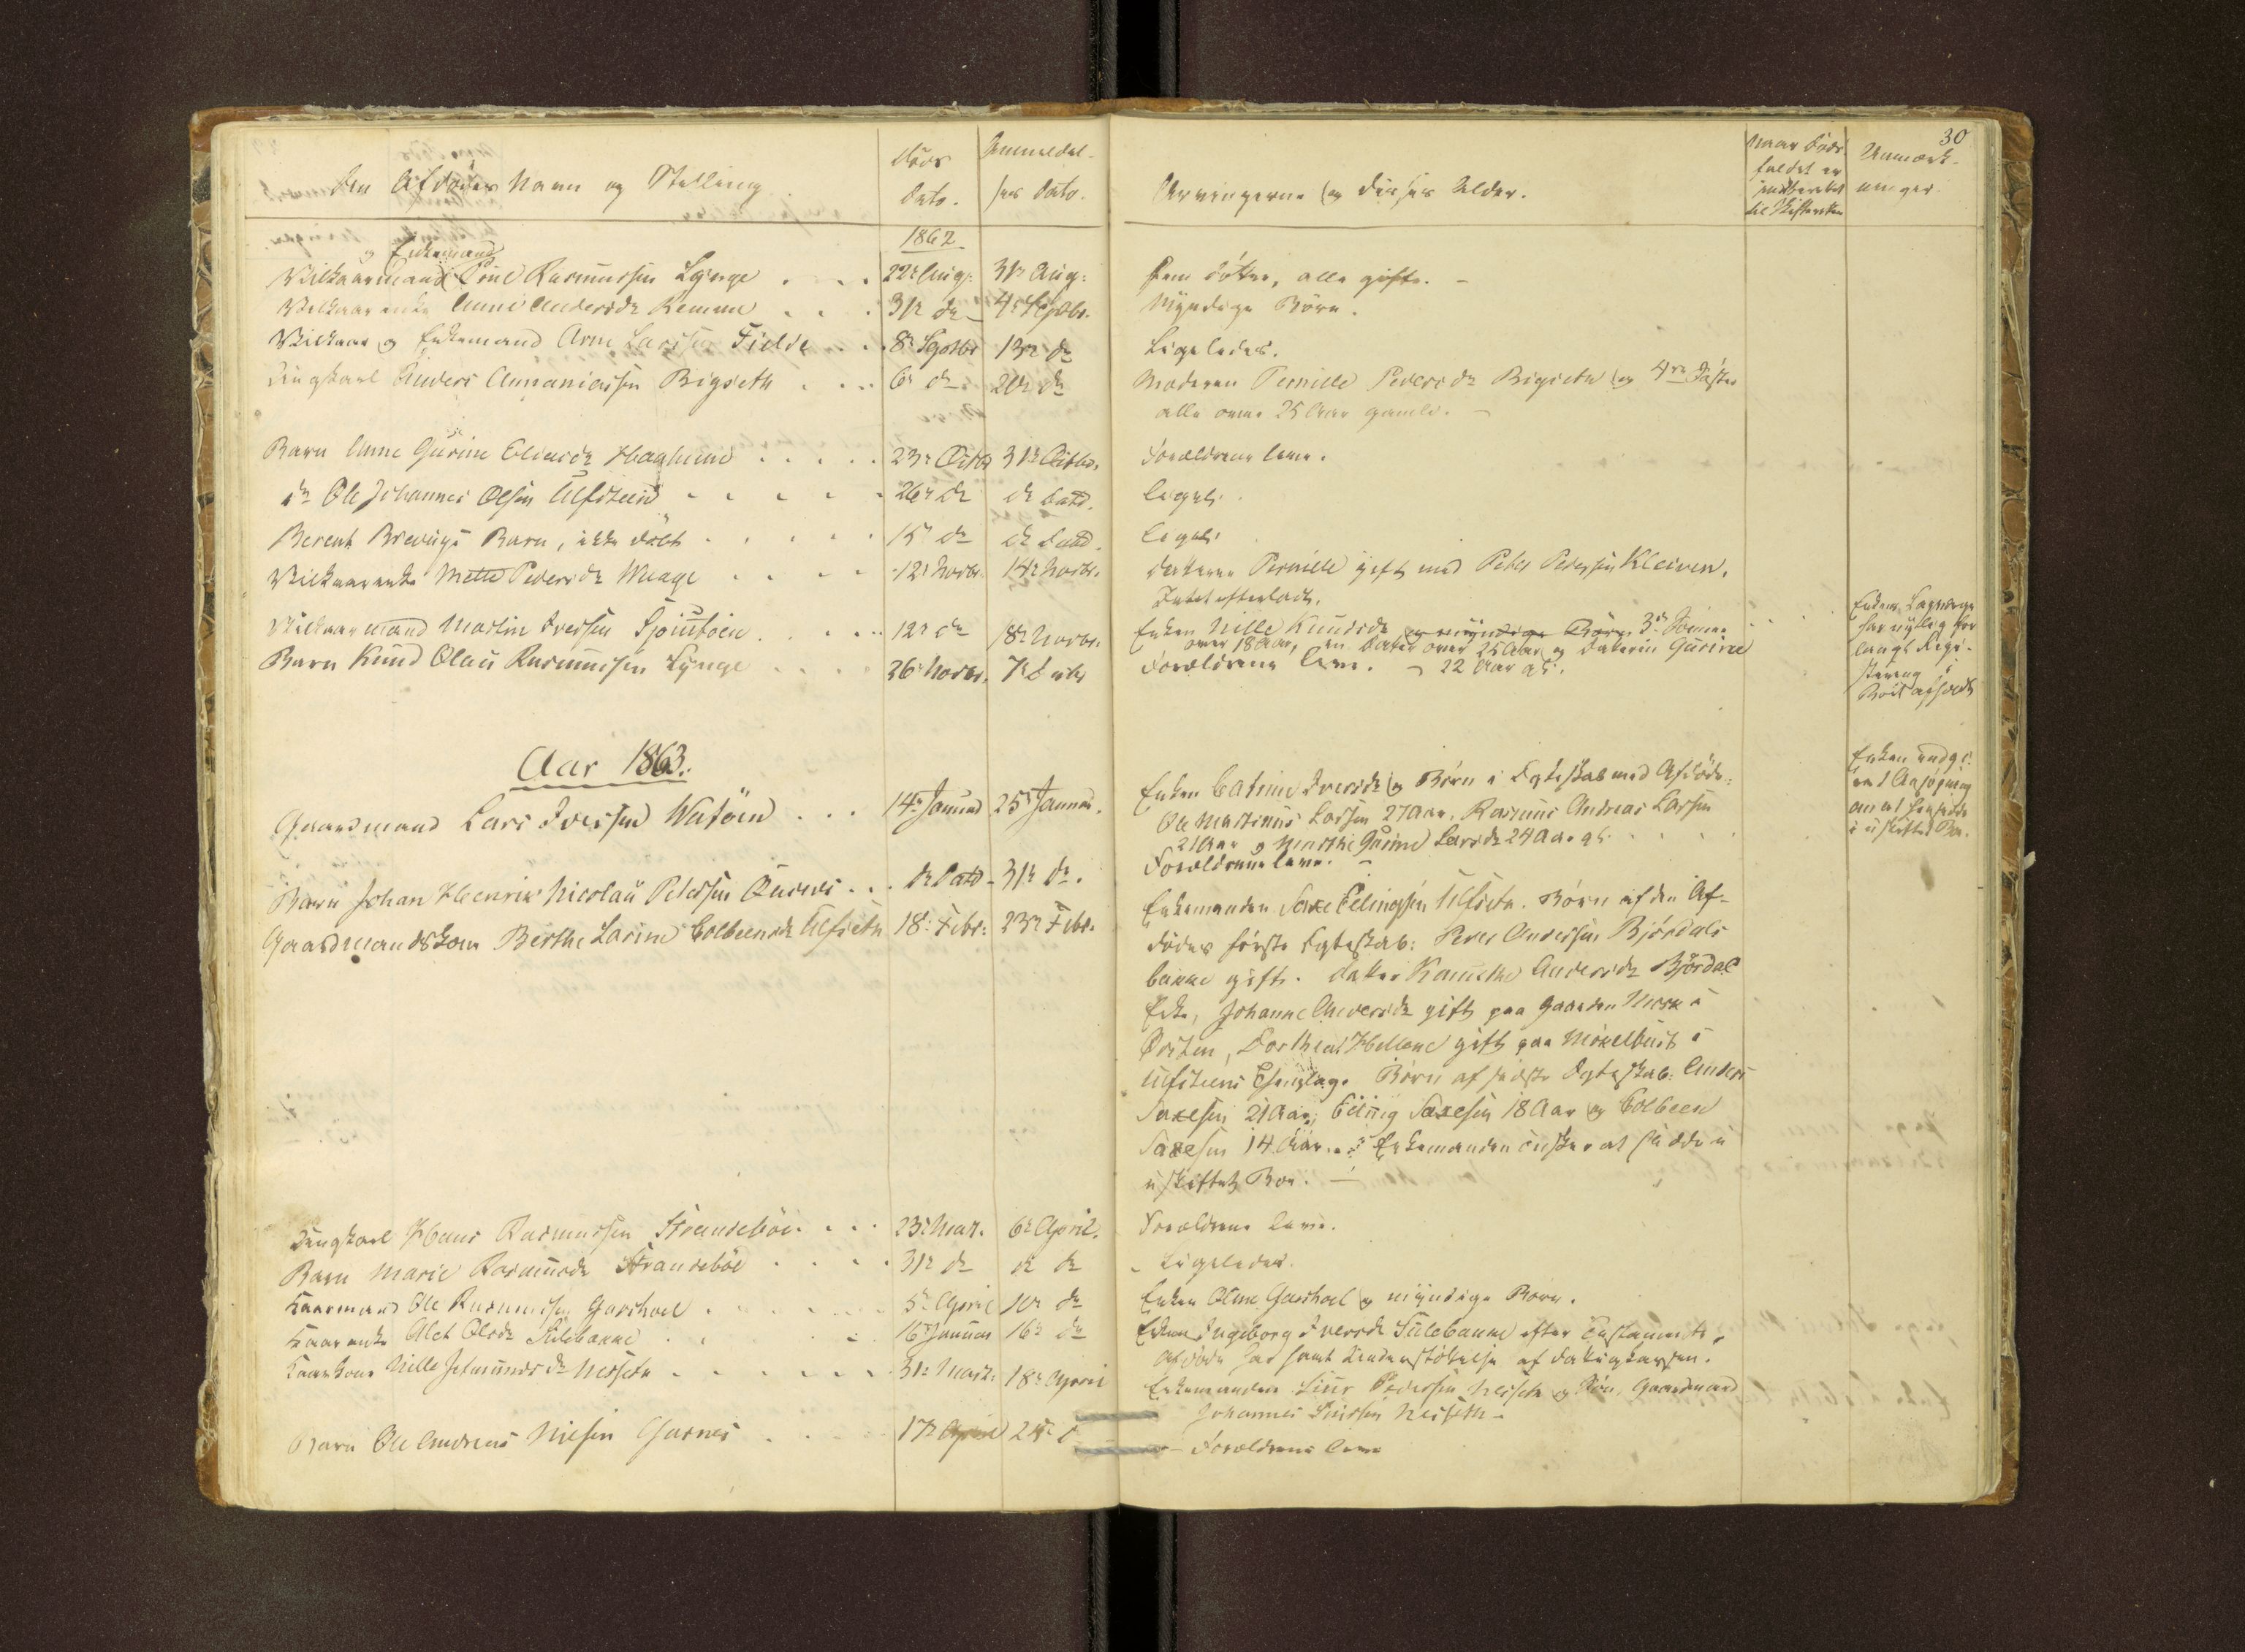 30
Den Afdødes Navn og Stilling
Døds Dato.
Anmeldelsens Dato.
Arvingerne og disses Alder.
Naar Dødsfaldet er indberettet til Skifteretten
Anmærkninger.
1862
og Enkemand
Vilkaarmand Poul Rasmussen Lynge . . . 22r Aug: 31r Aug: Fem Døttre, alle gifte. -
Vilkaarenke Anne Andersdr Remme . . . 31r dr 4r Septbr. Myndige Børn.
Vilkaar og Enkemand Arne Larsen Fielde . . . 8r Septbr 13r dr Ligeledes.
Ungkarl Anders Annaniassen Bigseth . . . 6r dr 20r dr Moderen Pernille Pedersdr Bigseth og 4re Søstre
alle over 25 Aar gamle. -
Barn Anne Gurine Eliasdr Haahiem . . . . . 23r Octbr 31r Octbr. Forældrene leve.
dr Ole Johannes Olsen Ulfsteen . . . . . 26r dr dr Dato. Ligel.
Berent Brevigs Barn, ikke døbt . . . . . 15r dr dr Dato. Ligel.
Vilkaarenke Mette Pedersdr Waage . . . . 12r Novbr. 14r Novbr. Datteren Pernille gift med Peter Pedersen Kleiven.
Intet efterladt.
Vilkaarmand Martin Iversen Tjoveitøen . . . . . 12r dr 18r Novbr. Enken Nille Knudsdr og myndige Børn 3de Sønner
over 18 Aar, en Datter over 25 Aar og Datteren Gurine
22 Aar gl.
Enkens Laugværge
har nylig for
langt Regi-
stering i
Boet afholdt
Barn Knud Olaus Rasmussen Lynge . . . . 26r Novbr. 7r Decbr Forældrene leve.
Aar 1863.
Gaardmand Lars Iversen Watøen . . . 14r Januar 25r Januar. Enken Cathrine Iversdr og Børn i Egteskab med Afdøde:
Ole Martinus Larsen 27 Aar, Rasmus Andreas Larsen
21 Aar og Marthe Gurine Larsdr 24 Aar gl.
Enken indgi-
vet Ansøgning
om at hensidde
i uskiftet Bo.
Barn Johan Henrik Nicolai Petersen . . . dr Dato - 31r dr. Forældrene leve. -
Gaardmandskone Berthe Larine Colbeensdr Ulfseth 18r Febr: 23r Febr. Enkemanden Saxe Ellingsen Ulfseth. Børn af den Af-
dødes første Egteskab: Peder Andersen Bjørdals
bakke gift. Datter Andersdr Bjørdal
Enke, Johanne Andersdr gift paa Gaarden Mork i
Ørsten, Dorthea Hellene gift paa Mokelbust i
Ulfsteens Thinglag. Børn af sidste Egteskab: Anders
Saxesen 21 Aar, Elling Saxesen 18 Aar og Colbeen
Saxesen 14 Aar. Enkemanden ønsker at sidde i
uskiftet Boe. -
Ungkarl Hans Rasmussen Strandebøe . . . 23r Mar. 6r April. Forældrene leve.
Barn Marie Rasmusdr Strandebøe . . . . 31r dr dr dr Ligeledes.
Kaarmand Ole Rasmussen Garshoel . . . . . 5r April 10r dr Enken Oline Garshoel og myndige Børn.
Kaarenke Alet Olsdr Sulebakke . . . . 16r Januar 16r dr Enken Ingeborg Iversdr Sulebakke efter Testamente.
Afdøde har havt Understøttelse af Fattigkassen.
Kaarkone Nille Jetmundsdr Nesseth . . . . . . 31r Marts. 18r April Enkemanden Siur Pedersen Nesseth og Søn, Gaardmand
Johannes Siursen Nesseth -
Barn Ole Andreas Nilsen Gursnes . . . . . 17r April 24r Forældrene leve